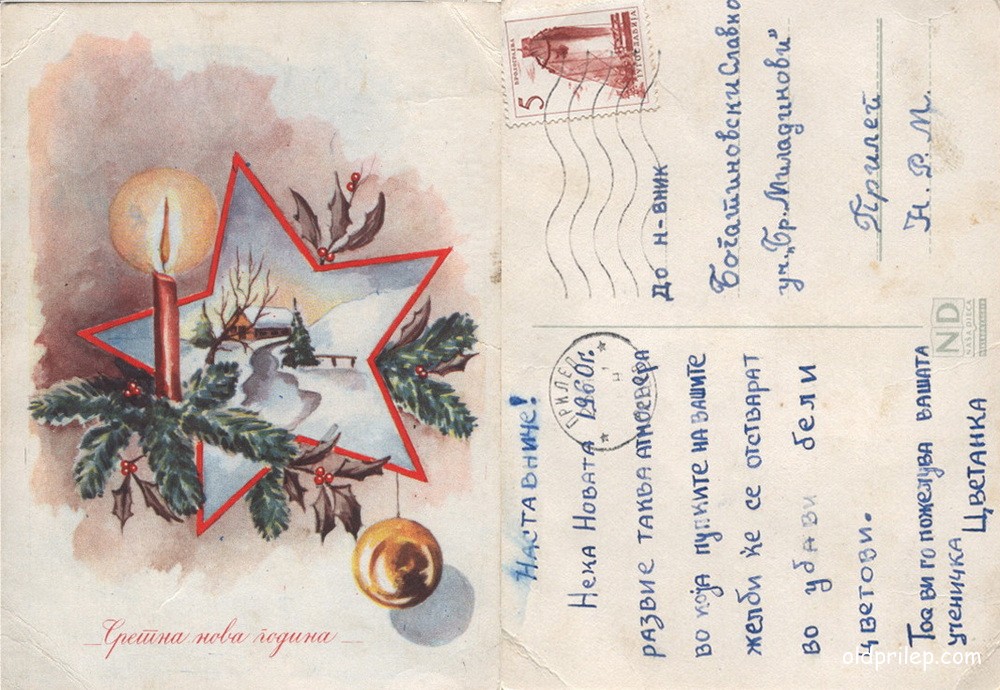 Сретна нова година
5
ЈУГОСЛАВИЈА
До н-вник
Богатиновски Славко
уч. „Бр. Миладинови"
Прилеп
Н. Р. М.
ND
NAŠA DJECA
ПРИЛЕП
Наставниче!
Нека Новата 1960г.
развие таква атмосвера
во која пупките на вашите
желби ќе се отстварат
во убави бели
цветови.
Тоа ви го пожелува вашата
ученичка Цветанка
oldprilep.com